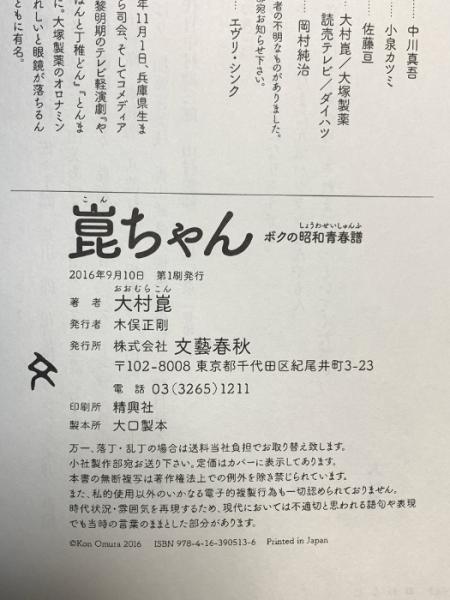 中川真吾
小泉カツミ
佐藤亘
大村崑／大塚製薬
読売テレビ／ダイハツ
岡村純治
者の不明なものがありました。
部宛お知らせ下さい。
エヴリ・シンク
年11月1日、兵庫県生ま
ら司会、そしてコメディア
黎明期のテレビ軽演劇『や
はんと丁稚どん』『とんま
に。大塚製薬のオロナミン
れしいと眼鏡が落ちるん
ともに有名。
こん
崑ちゃん
しょうわせいしゅんふ
ボクの昭和青春譜
2016年9月10日 第1刷発行
おおむらこん
著者 大村崑
発行者 木俣正剛
発行所 株式会社 文藝春秋
〒102-8008 東京都千代田区紀尾井町3-23
電話 03(3265)1211
印刷所 精興社
製本所 大口製本
万一、落丁・乱丁の場合は送料当社負担でお取り替え致します。
小社製作部宛お送り下さい。定価はカバーに表示してあります。
本書の無断複写は著作権法上での例外を除き禁じられています。
また、私的使用以外のいかなる電子的複製行為も一切認められておりません。
時代状況・雰囲気を再現するため、現代においては不適切と思われる語句や表現
でも当時の言葉のままとした部分があります。
©Kon Omura 2016 ISBN 978-4-16-390513-6 Printed in Japan